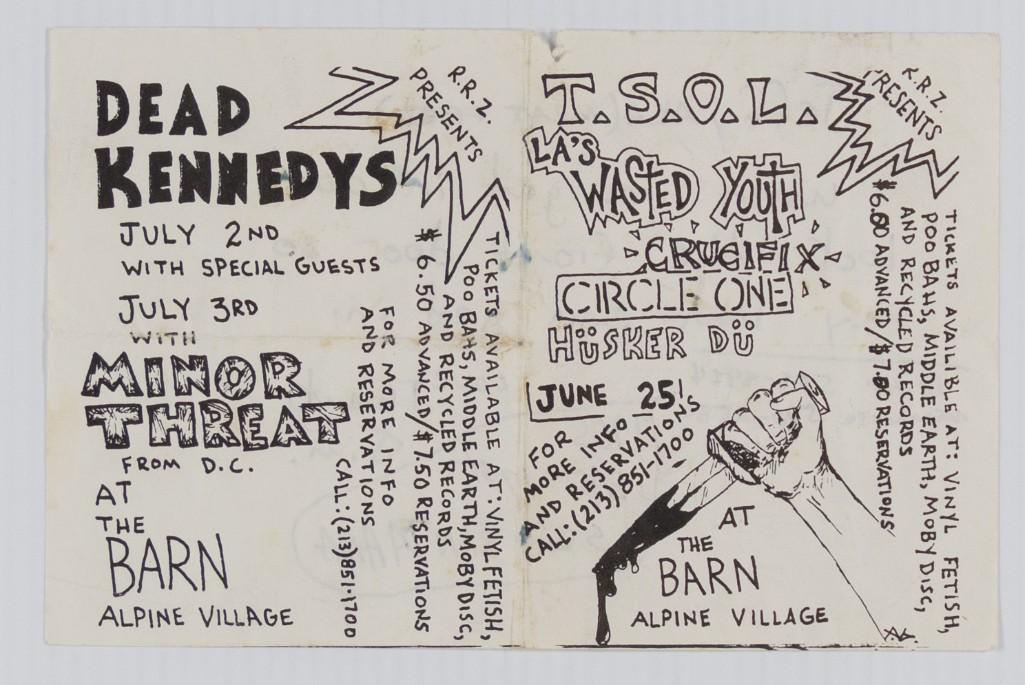 DEAD
KENNEDYS
JULY 2ND
WITH SPECIAL GUESTS
JULY 3RD
WITH
MINOR
THREAT
FROM D.C.
AT
THE
BARN
ALPINE VILLAGE
R.R.Z.
PRESENTS
TICKETS AVAILABLE AT: VINYL FETISH,
POO BAHS, MIDDLE EARTH, MOBY DISC,
AND RECYCLED RECORDS
$6.50 ADVANCED/$7.50 RESERVATIONS
FOR MORE INFO
AND RESERVATIONS
CALL: (213)851-1700
T.S.O.L.
LA'S
WASTED YOUTH
CRUCIFIX
CIRCLE ONE
HÜSKER DÜ
JUNE 25!
FOR
MORE INFO
AND RESERVATIONS
CALL: (213) 851-1700
AT
THE
BARN
ALPINE VILLAGE
R.R.Z.
PRESENTS
TICKETS AVAILIBLE AT: VINYL FETISH,
POO BAHS, MIDDLE EARTH, MOBY DISC,
AND RECYCLED RECORDS
$6.00 ADVANCED/$7.00 RESERVATIONS